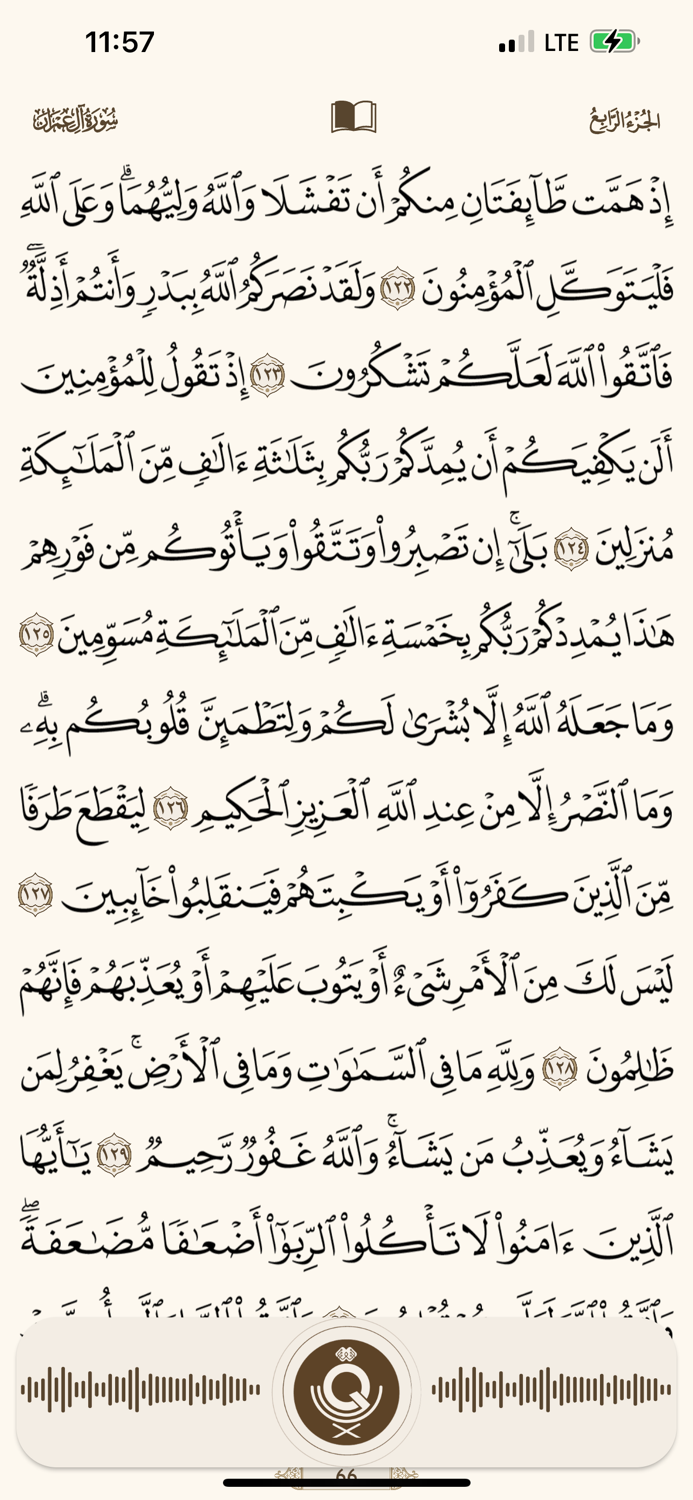 11:57 LTE
سُورَةُ آلِ عِمْرَانَ الجُزْءُ الرَّابِعُ
إِذْ هَمَّت طَّآئِفَتَانِ مِنكُمْ أَن تَفْشَلَا وَٱللَّهُ وَلِيُّهُمَاۗ وَعَلَى ٱللَّهِ
فَلْيَتَوَكَّلِ ٱلْمُؤْمِنُونَ ١٢٢ وَلَقَدْ نَصَرَكُمُ ٱللَّهُ بِبَدْرٍ وَأَنتُمْ أَذِلَّةٌۖ
فَٱتَّقُوا۟ ٱللَّهَ لَعَلَّكُمْ تَشْكُرُونَ ١٢٣ إِذْ تَقُولُ لِلْمُؤْمِنِينَ
أَلَن يَكْفِيَكُمْ أَن يُمِدَّكُمْ رَبُّكُم بِثَلَـٰثَةِ ءَالَـٰفٍ مِّنَ ٱلْمَلَـٰٓئِكَةِ
مُنزَلِينَ ١٢٤ بَلَىٰٓۚ إِن تَصْبِرُوا۟ وَتَتَّقُوا۟ وَيَأْتُوكُم مِّن فَوْرِهِمْ
هَـٰذَا يُمْدِدْكُمْ رَبُّكُم بِخَمْسَةِ ءَالَـٰفٍ مِّنَ ٱلْمَلَـٰٓئِكَةِ مُسَوِّمِينَ ١٢٥
وَمَا جَعَلَهُ ٱللَّهُ إِلَّا بُشْرَىٰ لَكُمْ وَلِتَطْمَئِنَّ قُلُوبُكُم بِهِۦۗ
وَمَا ٱلنَّصْرُ إِلَّا مِنْ عِندِ ٱللَّهِ ٱلْعَزِيزِ ٱلْحَكِيمِ ١٢٦ لِيَقْطَعَ طَرَفًا
مِّنَ ٱلَّذِينَ كَفَرُوٓا۟ أَوْ يَكْبِتَهُمْ فَيَنقَلِبُوا۟ خَآئِبِينَ ١٢٧
لَيْسَ لَكَ مِنَ ٱلْأَمْرِ شَىْءٌ أَوْ يَتُوبَ عَلَيْهِمْ أَوْ يُعَذِّبَهُمْ فَإِنَّهُمْ
ظَـٰلِمُونَ ١٢٨ وَلِلَّهِ مَا فِى ٱلسَّمَـٰوَٰتِ وَمَا فِى ٱلْأَرْضِۚ يَغْفِرُ لِمَن
يَشَآءُ وَيُعَذِّبُ مَن يَشَآءُۚ وَٱللَّهُ غَفُورٌ رَّحِيمٌ ١٢٩ يَـٰٓأَيُّهَا
ٱلَّذِينَ ءَامَنُوا۟ لَا تَأْكُلُوا۟ ٱلرِّبَوٰٓا۟ أَضْعَـٰفًا مُّضَـٰعَفَةًۖ
66